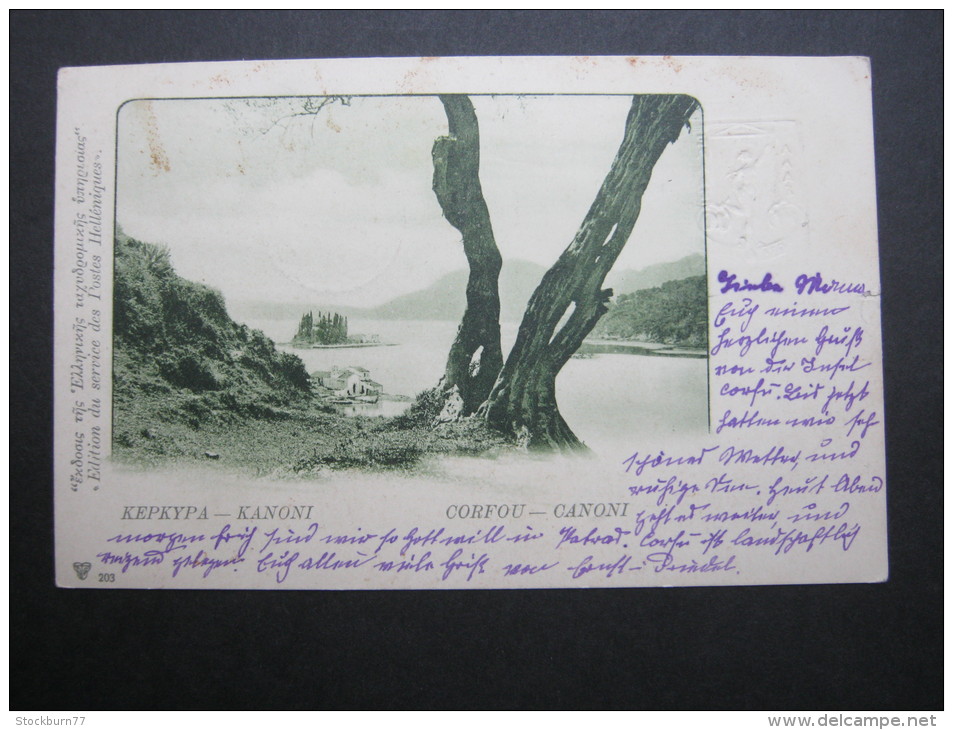 „Ἔκδοσις τῆς Ἑλληνικῆς ταχυδρομικῆς ὑπηρεσίας“
« Edition du service des Postes Helléniques ».
ΚΕΡΚΥΡΑ — ΚΑΝΟΝΙ
CORFOU — CANONI
203
Liebe Mama
Euch einen
herzlichen Gruß
von der Insel
Corfu. Bis jetzt
hatten wir sehr
schönes Wetter, und
ruhige See. Heut Abend
geht es weiter, und
morgen früh sind wir so Gott will in Patras. Corfu ist landschaftlich
reizend gelegen. Euch allen viele Grüße von Ernst
Stockburn77
www.delcampe.net